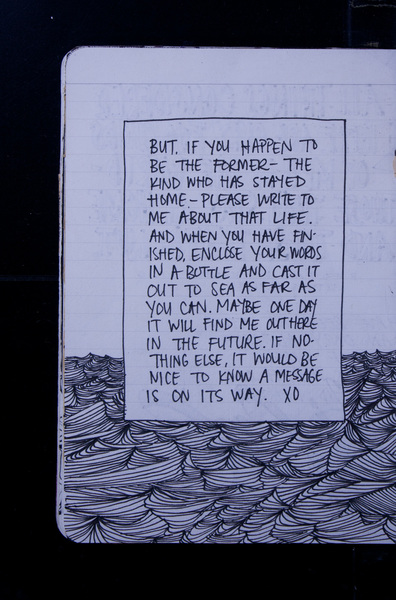 BUT. IF YOU HAPPEN TO
BE THE FORMER - THE
KIND WHO HAS STAYED
HOME - PLEASE WRITE TO
ME ABOUT THAT LIFE.
AND WHEN YOU HAVE FIN-
ISHED, ENCLOSE YOUR WORDS
IN A BOTTLE AND CAST IT
OUT TO SEA AS FAR AS
YOU CAN. MAYBE ONE DAY
IT WILL FIND ME OUT HERE
IN THE FUTURE. IF NO-
THING ELSE, IT WOULD BE
NICE TO KNOW A MESSAGE
IS ON ITS WAY. XO